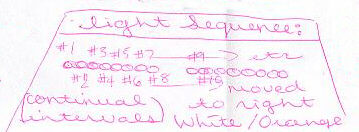 light sequence:
#1 #3 #5 #7 #9 → etc
#2 #4 #6 #8 #10
moved
(continual to right
intervals) White/Orange